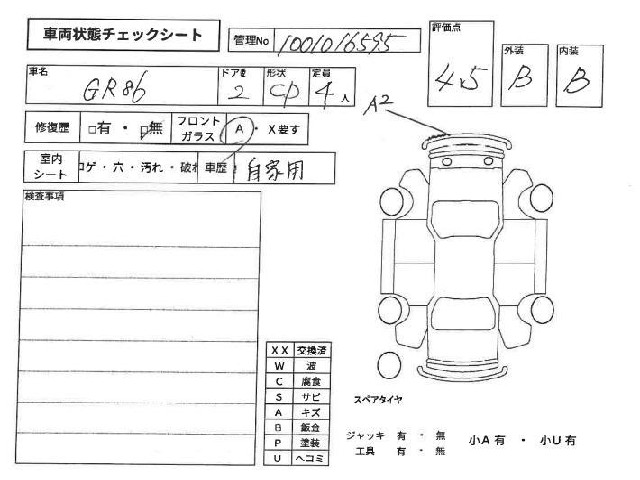 車両状態チェックシート 管理No 1001016595
評価点 4.5 外装 B 内装 B
車名 GR86 ドア数 2 形状 CP 定員 4人
A2
修復歴 □有・□無 フロントガラス A・X要す
室内シート コゲ・穴・汚れ・破れ 車歴 自家用
検査事項
XX 交換済
W 波
C 腐食
S サビ
A キズ
B 鈑金
P 塗装
U ヘコミ
スペアタイヤ
ジャッキ 有・無
工具 有・無
小A有・小U有